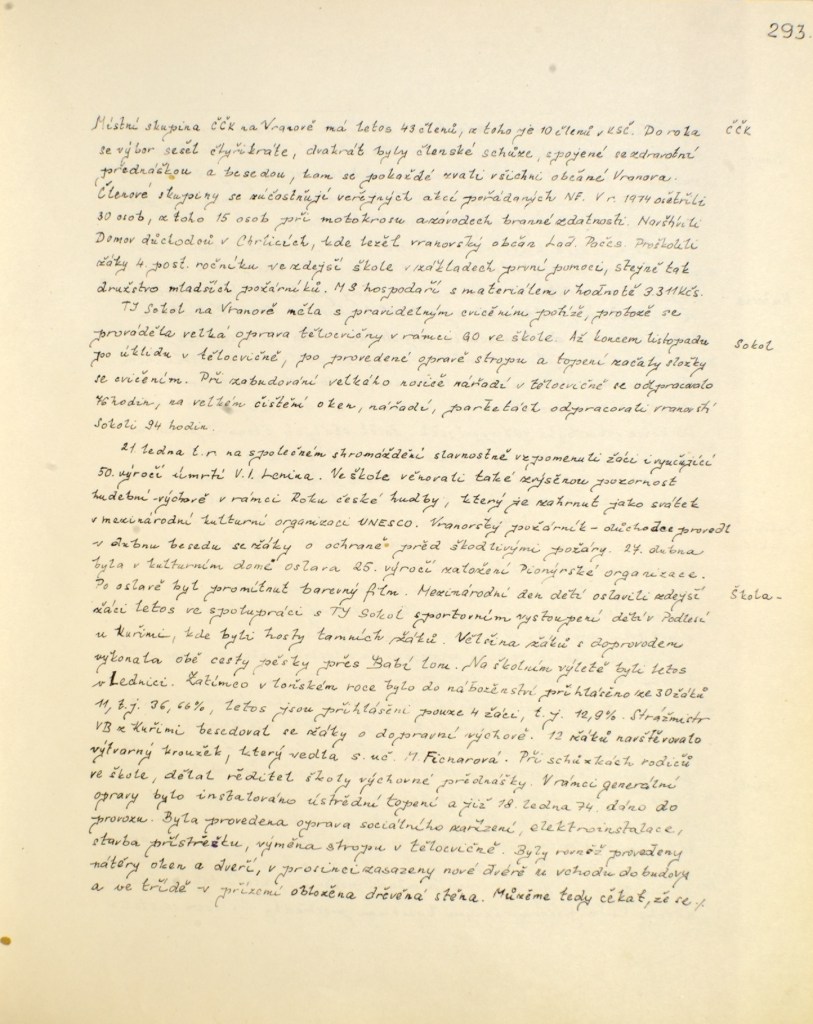 293.
Místní skupina ČČK na Vranově má letos 43 členů, z toho je 10 členů v KSČ. Do roka
ČČK
se výbor sešel čtyřikráte, dvakrát byly členské schůze, spojené se zdravotní
přednáškou a besedou, kam se pokaždé zvali všichni občané Vranova.
Členové skupiny se zúčastňují veřejných akcí pořádaných NF. V r. 1974 ošetřili
30 osob, z toho 15 osob při motokrosu a závodech branné zdatnosti. Navštívili
Domov důchodců v Chrlicích, kde ležel vranovský občan Lad. Pačes. Proškolili
žáky 4. post. ročníku ve zdejší škole v základech první pomoci, stejně tak
družstvo mladších požárníků. MS hospodaří s materiálem v hodnotě 3.311 Kčs.
TJ Sokol na Vranově měla s pravidelným cvičením potíže, protože se
prováděla velká oprava tělocvičny v rámci GO ve škole. Až koncem listopadu
Sokol
po úklidu v tělocvičně, po provedené opravě stropu a topení začaly složky
se cvičením. Při zabudování velkého nosiče nářadí v tělocvičně se odpracovalo
76 hodin, na velkém čistění oken, nářadí, parketách odpracovali vranovští
Sokoli 94 hodin.
21. ledna t. r. na společném shromáždění slavnostně vzpomenuli žáci i vyučující
50. výročí úmrtí V. I. Lenina. Ve škole věnovali také zvýšenou pozornost
hudební výchově v rámci Roku české hudby, který je zahrnut jako svátek
v mezinárodní kulturní organizaci UNESCO. Vranovský požárník – důchodce provedl
v dubnu besedu se žáky o ochraně před škodlivými požáry. 27. dubna
byla v kulturním domě oslava 25. výročí založení Pionýrské organizace.
Po oslavě byl promítnut barevný film. Mezinárodní den dětí oslavili zdejší
Škola-
žáci letos ve spolupráci s TJ Sokol sportovním vystoupení dětí v Podlesí
u Kuřimi, kde byli hosty tamních žáků. Většina žáků s doprovodem
vykonala obě cesty pěšky přes Babí lom. Na školním výletě byli letos
v Lednici. Zatímco v loňském roce bylo do náboženství přihlášeno ze 30 žáků
11, t. j. 36,66%, letos jsou přihlášeni pouze 4 žáci, t. j. 12,9%. Strážmistr
VB z Kuřimi besedoval se žáky o dopravní výchově. 12 žáků navštěvovalo
výtvarný kroužek, který vedla s. uč. M. Ficnarová. Při schůzkách rodičů
ve škole, dělal ředitel školy výchovné přednášky. V rámci generální
opravy bylo instalováno ústřední topení a již 18. ledna 74. dáno do
provozu. Byla provedena oprava sociálního zařízení, elektroinstalace,
stavba přístřešku, výměna stropu v tělocvičně. Byly rovněž provedeny
nátěry oken a dveří, v prosinci zasazeny nové dvéře u vchodu do budovy
a ve třídě v přízemí obložena dřevěná stěna. Můžeme tedy čekat, že se ./.